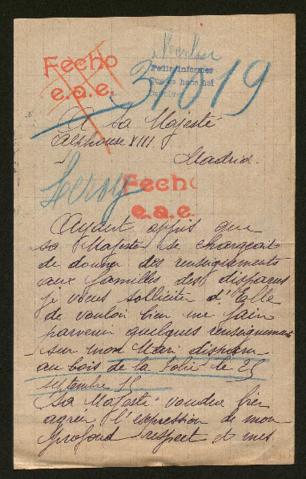 Fecho
e.a.e.
Pedir informes
31019
A Sa Majesté
Alphonse XIII
Madrid.
Leroy
Fecho
e.a.e.
Ayant appris que
Sa Majesté se chargeait
de donner des renseignements
aux familles des disparus
je vous solliciter d'
de vouloir bien me faire
parvenir quelques renseignements
sur mon Mari disparu
au bois de la Folie le 25
septembre 15
Sa Majesté voudra bien
agréer l'expression de mon
profond respect et mes